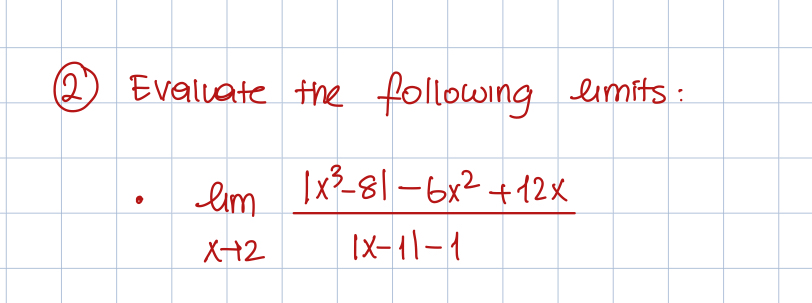 ② Evaluate the following limits:
• lim x→2 (|x³-8| - 6x² + 12x) / (|x-1| - 1)